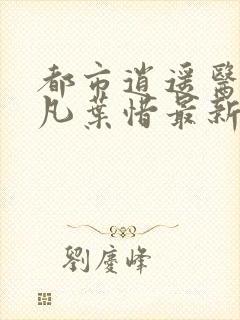 都市逍遥醫
凡葉惜最新
劉慶峰